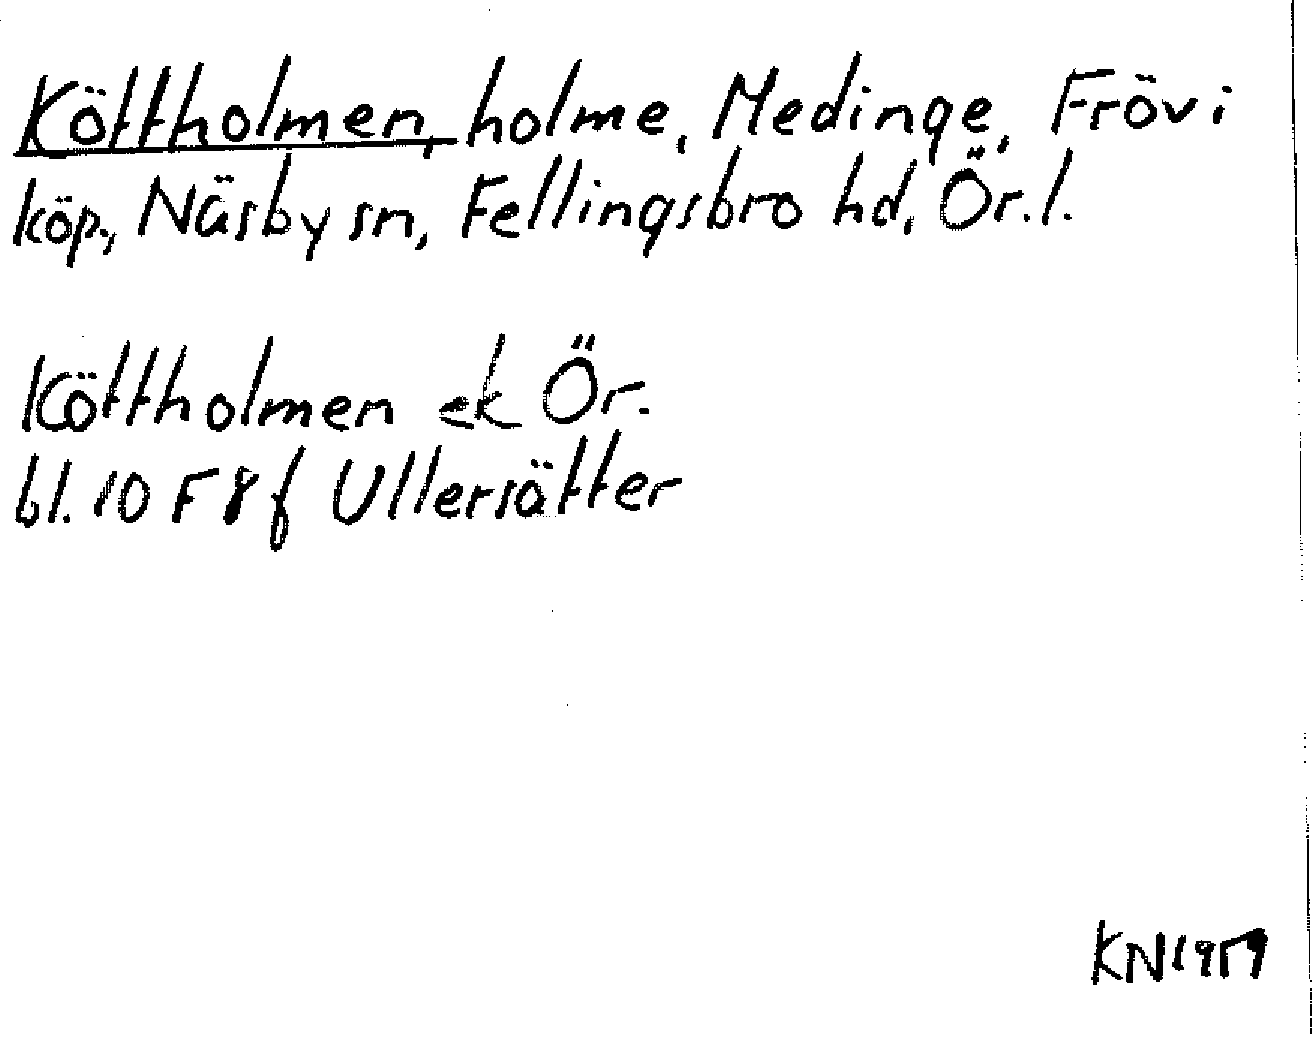 Köttholmen, holme, Medinge, Frövi
köp., Näsby sn, Fellingsbro hd, Ör. l.
Köttholmen ek Ör.
bl. 10 F 8 f Ullersätter